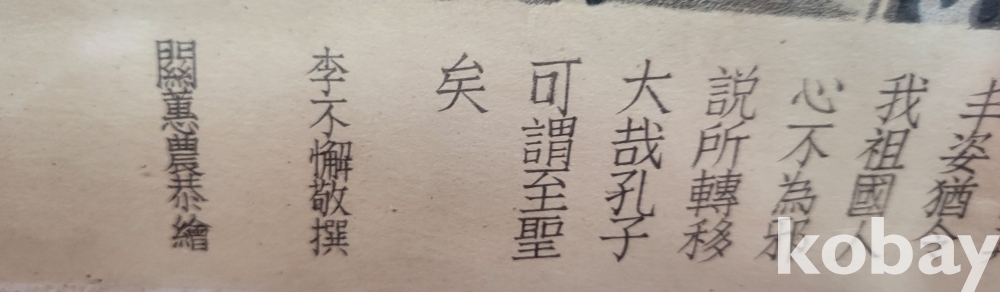 丰姿猶今
我祖國人
心不為邪
説所轉移
大哉孔子
可謂至聖
矣
李不懈敬撰
關蕙農恭繪
kobay